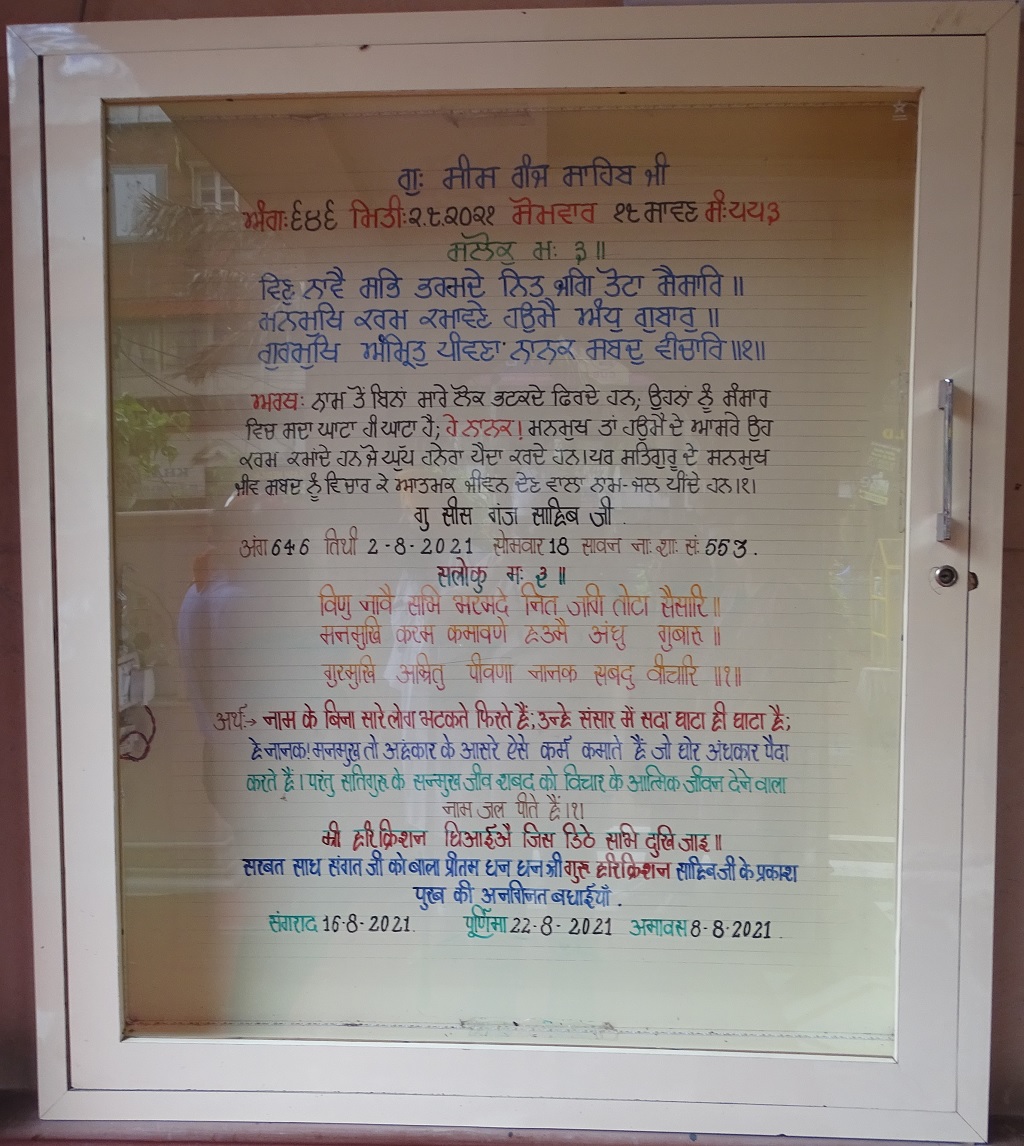 ਗੁ: ਸੀਸ ਗੰਜ ਸਾਹਿਬ ਜੀ
ਅੰਗ:੬੪੬ ਮਿਤੀ:੨.੮.੨੦੨੧ ਸੋਮਵਾਰ ੧੮ ਸਾਵਣ ਸੰ:੫੫੩
ਸਲੋਕੁ ਮ: ੩॥
ਵਿਣੁ ਨਾਵੈ ਸਭਿ ਭਰਮਦੇ ਨਿਤ ਜਗਿ ਤੋਟਾ ਸੈਸਾਰਿ ॥
ਮਨਮੁਖਿ ਕਰਮ ਕਮਾਵਣੇ ਹਉਮੈ ਅੰਧੁ ਗੁਬਾਰੁ ॥
ਗੁਰਮੁਖਿ ਅੰਮ੍ਰਿਤੁ ਪੀਵਣਾ ਨਾਨਕ ਸਬਦੁ ਵੀਚਾਰਿ ॥੧॥
ਅਰਥ: ਨਾਮ ਤੋਂ ਬਿਨਾਂ ਸਾਰੇ ਲੋਕ ਭਟਕਦੇ ਫਿਰਦੇ ਹਨ; ਉਹਨਾਂ ਨੂੰ ਸੰਸਾਰ
ਵਿਚ ਸਦਾ ਘਾਟਾ ਹੀ ਘਾਟਾ ਹੈ; ਹੇ ਨਾਨਕ! ਮਨਮੁਖ ਤਾਂ ਹਉਮੈ ਦੇ ਆਸਰੇ ਉਹ
ਕਰਮ ਕਮਾਂਦੇ ਹਨ ਜੋ ਘੁੱਪ ਹਨੇਰਾ ਪੈਦਾ ਕਰਦੇ ਹਨ।ਪਰ ਸਤਿਗੁਰੂ ਦੇ ਸਨਮੁਖ
ਜੀਵ ਸਬਦ ਨੂੰ ਵਿਚਾਰ ਕੇ ਆਤਮਕ ਜੀਵਨ ਦੇਣ ਵਾਲਾ ਨਾਮ-ਜਲ ਪੀਂਦੇ ਹਨ।੧।
गु सीस गंज साहिब जी .
अंग 646 तिथी 2-8-2021 सोमवार 18 सावन ना: शा: सं: 553.
सलोकु म: ३॥
विणु नावै सभि भरमदे नित जगि तोटा सैसारि॥
मनमुखि करम कमावणे हउमै अंधु गुबारु ॥
गुरमुखि अम्रितु पीवणा नानक सबदु वीचारि ॥१॥
अर्थ:-> नाम के बिना सारे लोग भटकते फिरते हैं; उन्हे संसार में सदा घाटा ही घाटा है;
हे नानक! मनमुख तो अहंकार के आसरे ऐसे कर्म कमाते हैं जो घोर अंधकार पैदा
करते हैं। परंतु सतिगुरु के सन्मुख जीव शबद को विचार के आत्मिक जीवन देने वाला
नाम जल पीते हैं।१।
श्री हरिक्रिशन धिआईऐ जिस डिठे सभि दुखि जाइ॥
सरबत साध संगत जी को बाला प्रीतम धन धन श्री गुरु हरिक्रिशन साहिब जी के प्रकाश
पुरब की अनगिनत बधाईयाँ .
संगराद 16-8-2021. पूर्णिमा 22-8-2021 अमावस 8-8-2021.